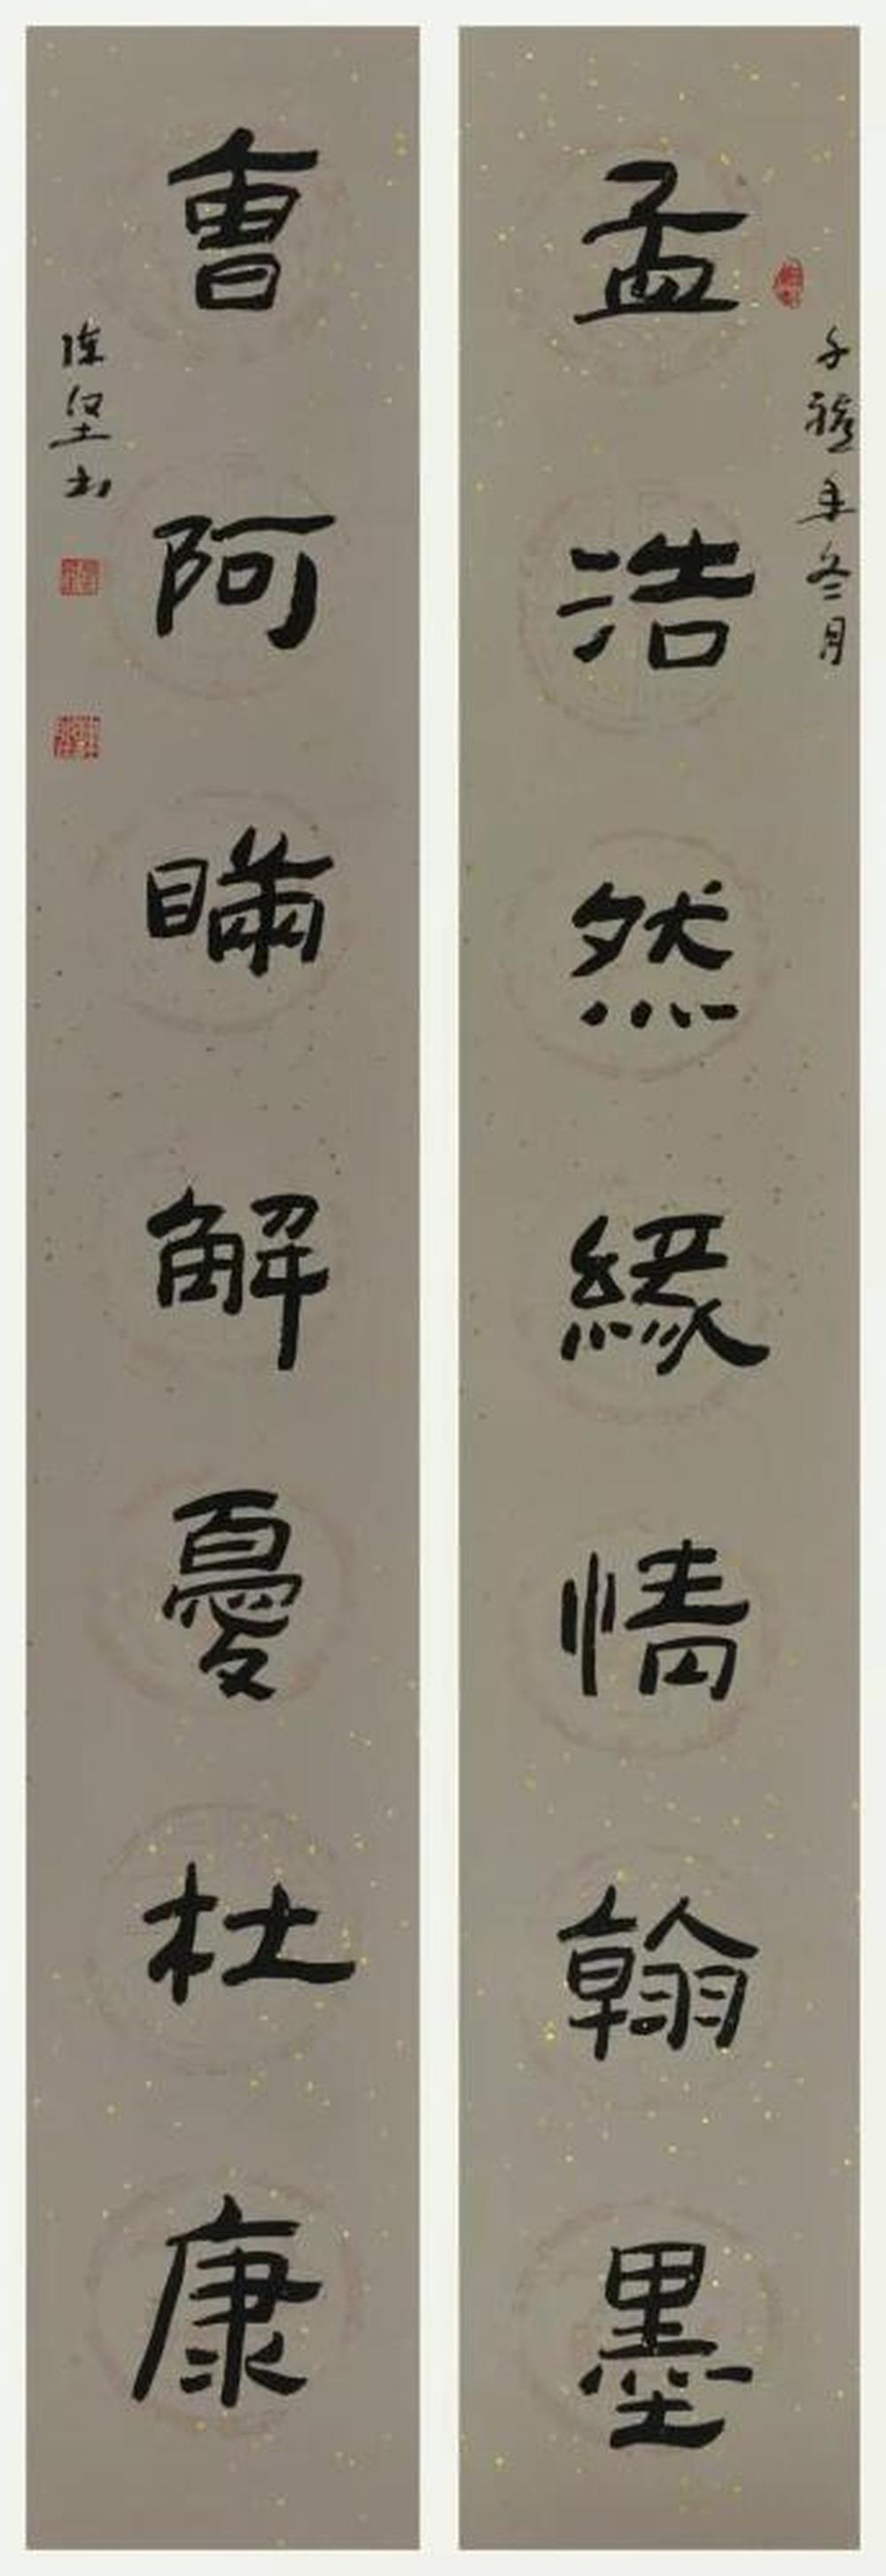 千禧年冬月
孟浩然緣情翰墨
曹阿瞞解憂杜康
陈坚书